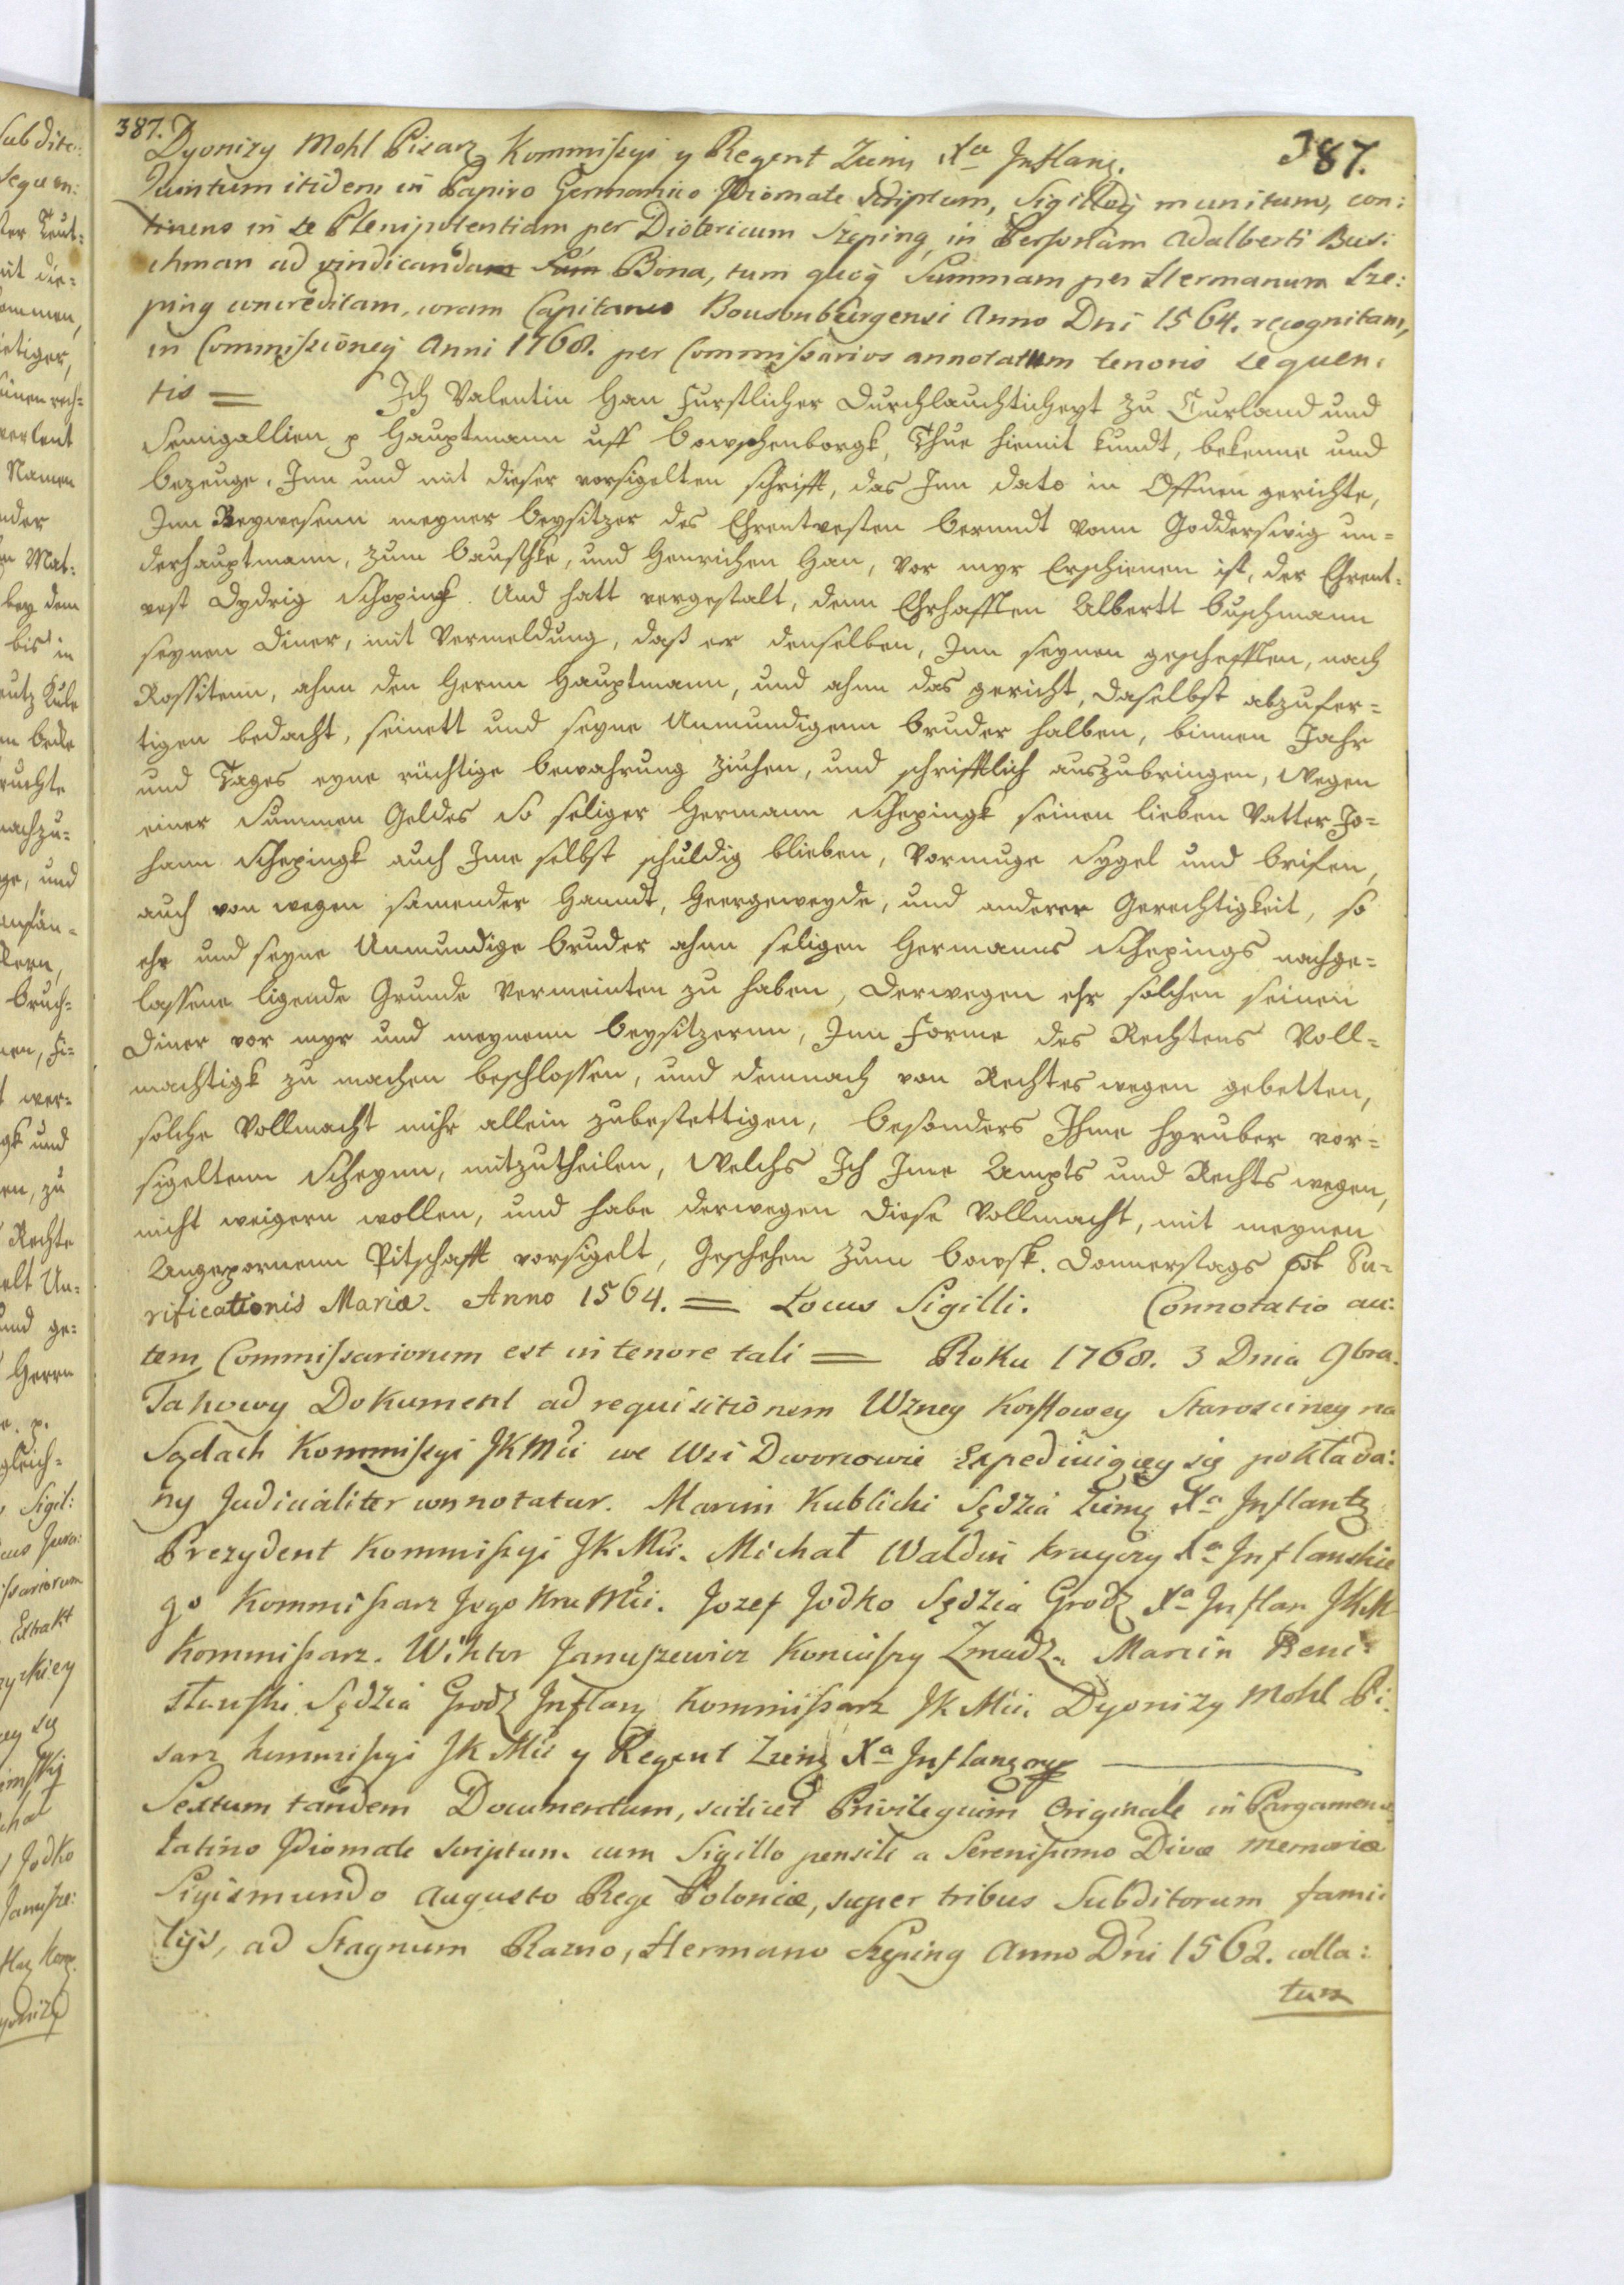 387.
387.
Dyonizy Mohl Pisarz Kommißyi y Regent Ziem Xa Inflanz.
Quintum itidem in Papiro Germanico Idiomate Scriptum, Sigilloq munitum, con:
tinens in se Plenipotentiam per Diotericum Szeping, in Personam Adalberti Bus:
chman ad vindicanda Bona, tum quoq Summam per Hermanum Sze:
ping concreditam, coram Capitaneo Bousonburgensi Anno Dni 1564. recognitam,
in Commißioneq Anni 1768. per Commißarios annotatum tenoris sequen:
tis = Ich Valentin Han Furstlicher Durchlauchticheyt zu Curland und
Semigallien p Hauptmann uff Bowschenborgk, Thue hiemit kundt, bekenne und
bezeuge. Inn und mit dieser vorsigelten schrifft, das Inn dato in Offnen gerichte,
Inn Beywesenn meyner beysitzer des Ehrentvesten Berendt vonn Godderswig un=
derhauptmann, zum Bauschke, und Henrichen Han, vor myr Erschienen ist, der Ehrent=
vest Dydrig Schopingk. Und hatt vergestalt, denn Ehrhafften Albertt Buschmann
seynen Diner, mit Vermeldung, daß er denselben, Inn seynen gescheffften, nach
Rossitenn, ahnn den Hernn Hauptmann, und ahnn das gericht, daselbst abzufer=
tigen bedacht, seinett und seyne Unmundigenn bruder halben, binnen Jahr
und Tages eyne richtige bewahrung ziehen, und schrifftlich auszubringen, Wegen
einer Summen Geldes so seliger Hermann Schepingk seinen lieben Vatter Jo=
hann Schepingk auch Ime selbst schuldig blieben, Vormuge Sygel und brifen,
auch von wegen samender Handt, Heergeweyde, und anderer Gerechtigkeit, so
ehr und seyne Unmundige bruder ahnn seligen Hermanns Schepings nachge=
lassene ligende Grunde vermeinten zu haben, derwegen ehr solchen seinen
Diner vor myr und meynenn beysitzernn, Inn Forme des Rechtens Voll=
machtigk zu machen beschlossen, und demnach von Rechtes wegen gebetten,
solche Vollmacht nicht allein zubestettigen, besonders Ihme hyruber vor=
sigeltenn Scheynn, mitzutheilen, Welchs Ich Ime Ampts und Rechts wegen,
nicht weigern wollen, und habe derwegen diese Vollmacht, mit meynen
Angepornenn Pitschafft vorsigelt, Geschehen zum Bowsk. Donnerstags post Pu=
rificationis Mariæ. Anno 1564. = Locus Sigilli. Connotatio au:
tem Commißariorum est in tenore tali = Roku 1768. 3 Dnia 9bra.
Takowy Dokument ad requisitionem Wzney Korffowey Starosciney na
Sądach Kommißyi JKMci we Wsi Dworcowie Expediuiącey się pokłada:
ny Judicialiter connotatur. Marcin Kublicki Sędzia Ziem Xa Inflantz
Prezydent Kommißyi JKMci. Michał Waldin Krayczy Xa Inflanskie
go Kommißarz Jego Kru Mci. Jozef Jodko Sędzia Grodz Xa Inflan JKM
Kommißarz. Wiktor Januszewicz Koniuszy Zmudz. Marcin Beni:
sławski Sędzia Grodz Inflanz Kommißarz JKMci. Dyonizy Mohl Pi:
sarz Kommißyi JKMci y Regent Ziem Xa Inflanz mp
Sextum tandem Documentum, scilicet Privilegium Originale in Pargameno
Latino Idiomate Scriptum cum Sigillo pensili a Serenißimo Divæ memoriæ
Sigismundo Augusto Rege Poloniæ, super tribus Subditorum fami:
lijs, ad Stagnum Razno, Hermano Szeping Anno Dni 1562. colla:
tum